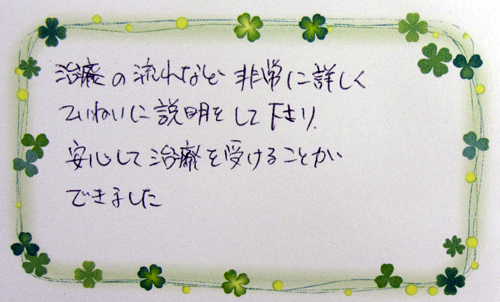 治療の流れなど 非常に詳しく
ていねいに説明をして下さり、
安心して治療を受けることが
できました